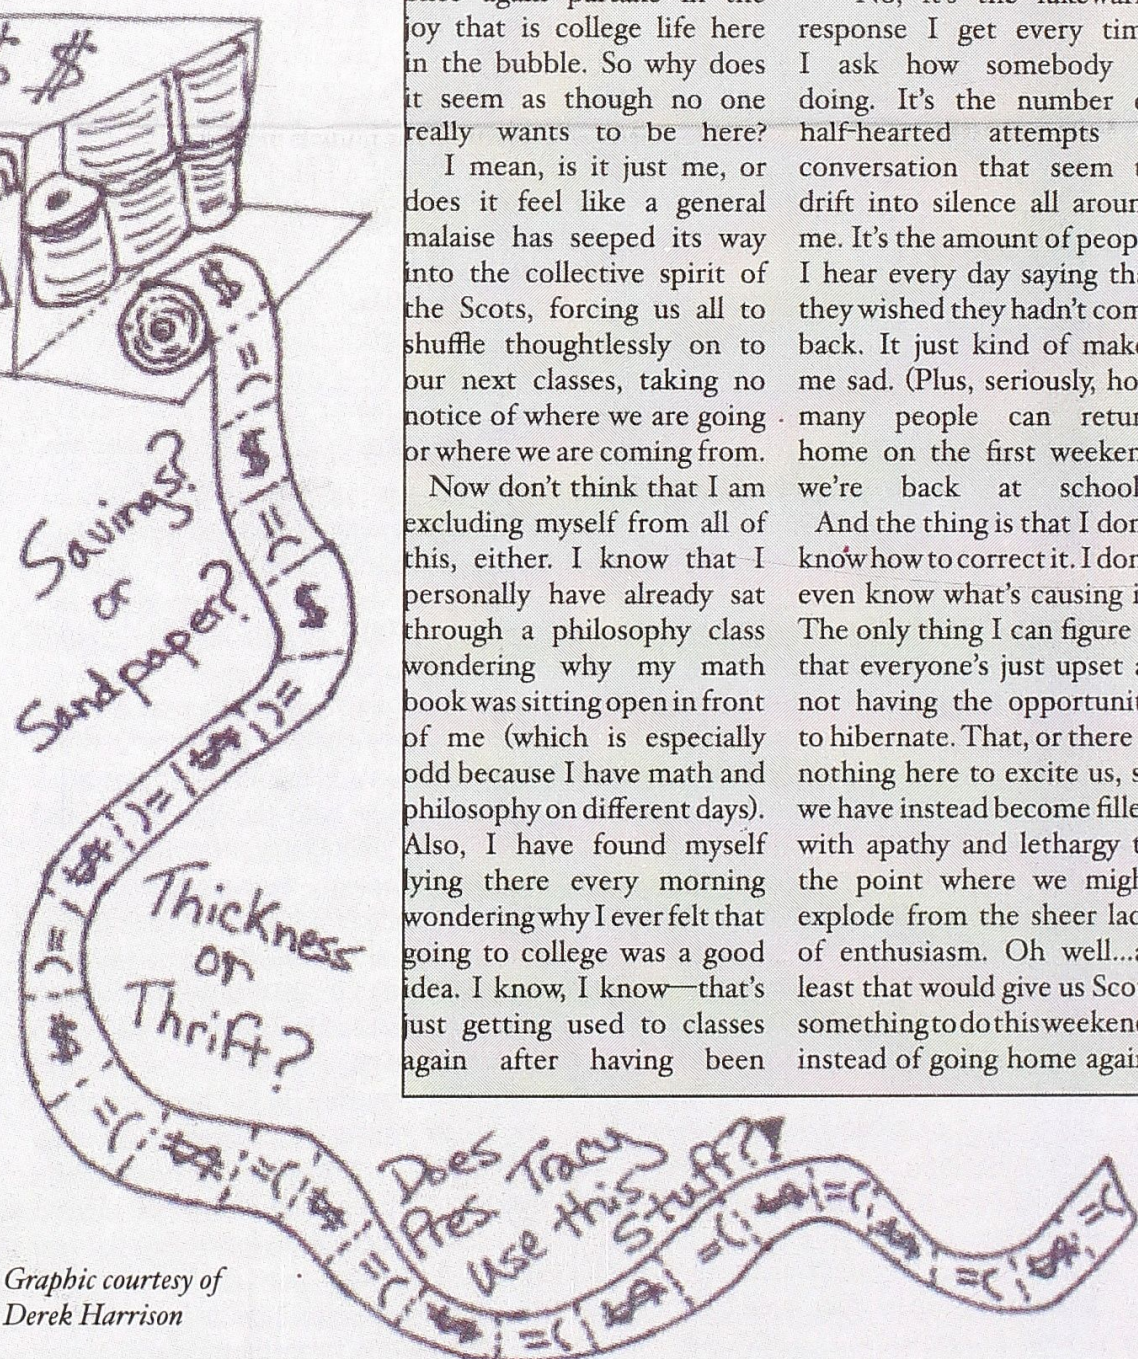 $ $
Savings?
or
Sandpaper?
Thickness
or
Thrift?
Does
Pres. Tracy
use this
Stuff??
$
=(
$
=(
$
=(
$
=(
$
=(
$
=(
$
=(
$
=(
$
=(
$
=(
$
=(
$
=(
$
=(
Graphic courtesy of
Derek Harrison
joy that is college life here
in the bubble. So why does
it seem as though no one
really wants to be here?
I mean, is it just me, or
does it feel like a general
malaise has seeped its way
into the collective spirit of
the Scots, forcing us all to
shuffle thoughtlessly on to
our next classes, taking no
notice of where we are going
or where we are coming from.
Now don't think that I am
excluding myself from all of
this, either. I know that I
personally have already sat
through a philosophy class
wondering why my math
book was sitting open in front
of me (which is especially
odd because I have math and
philosophy on different days).
Also, I have found myself
lying there every morning
wondering why I ever felt that
going to college was a good
idea. I know, I know—that's
just getting used to classes
again after having been
response I get every tim
I ask how somebody
doing. It's the number
half-hearted attempts
conversation that seem t
drift into silence all aroun
me. It's the amount of peop
I hear every day saying th
they wished they hadn't com
back. It just kind of make
me sad. (Plus, seriously, ho
many people can retur
home on the first weeken
we're back at school
And the thing is that I don
know how to correct it. I don
even know what's causing i
The only thing I can figure
that everyone's just upset a
not having the opportunit
to hibernate. That, or there
nothing here to excite us, s
we have instead become fille
with apathy and lethargy t
the point where we migh
explode from the sheer lac
of enthusiasm. Oh well...a
least that would give us Sco
something to do this weeken
instead of going home again